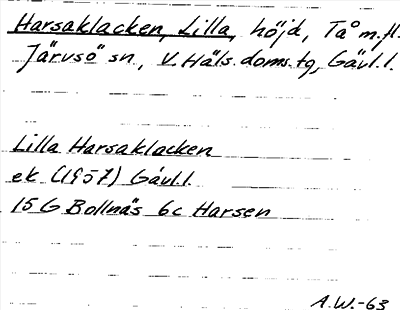 Harsaklacken, Lilla, höjd, Tå m.fl.
Järvsö sn, V. Häls. doms.tg, Gävl.l.
Lilla Harsaklacken
ek (1957) Gävl.l.
15 G Bollnäs 6c Harsen
A.W.-63